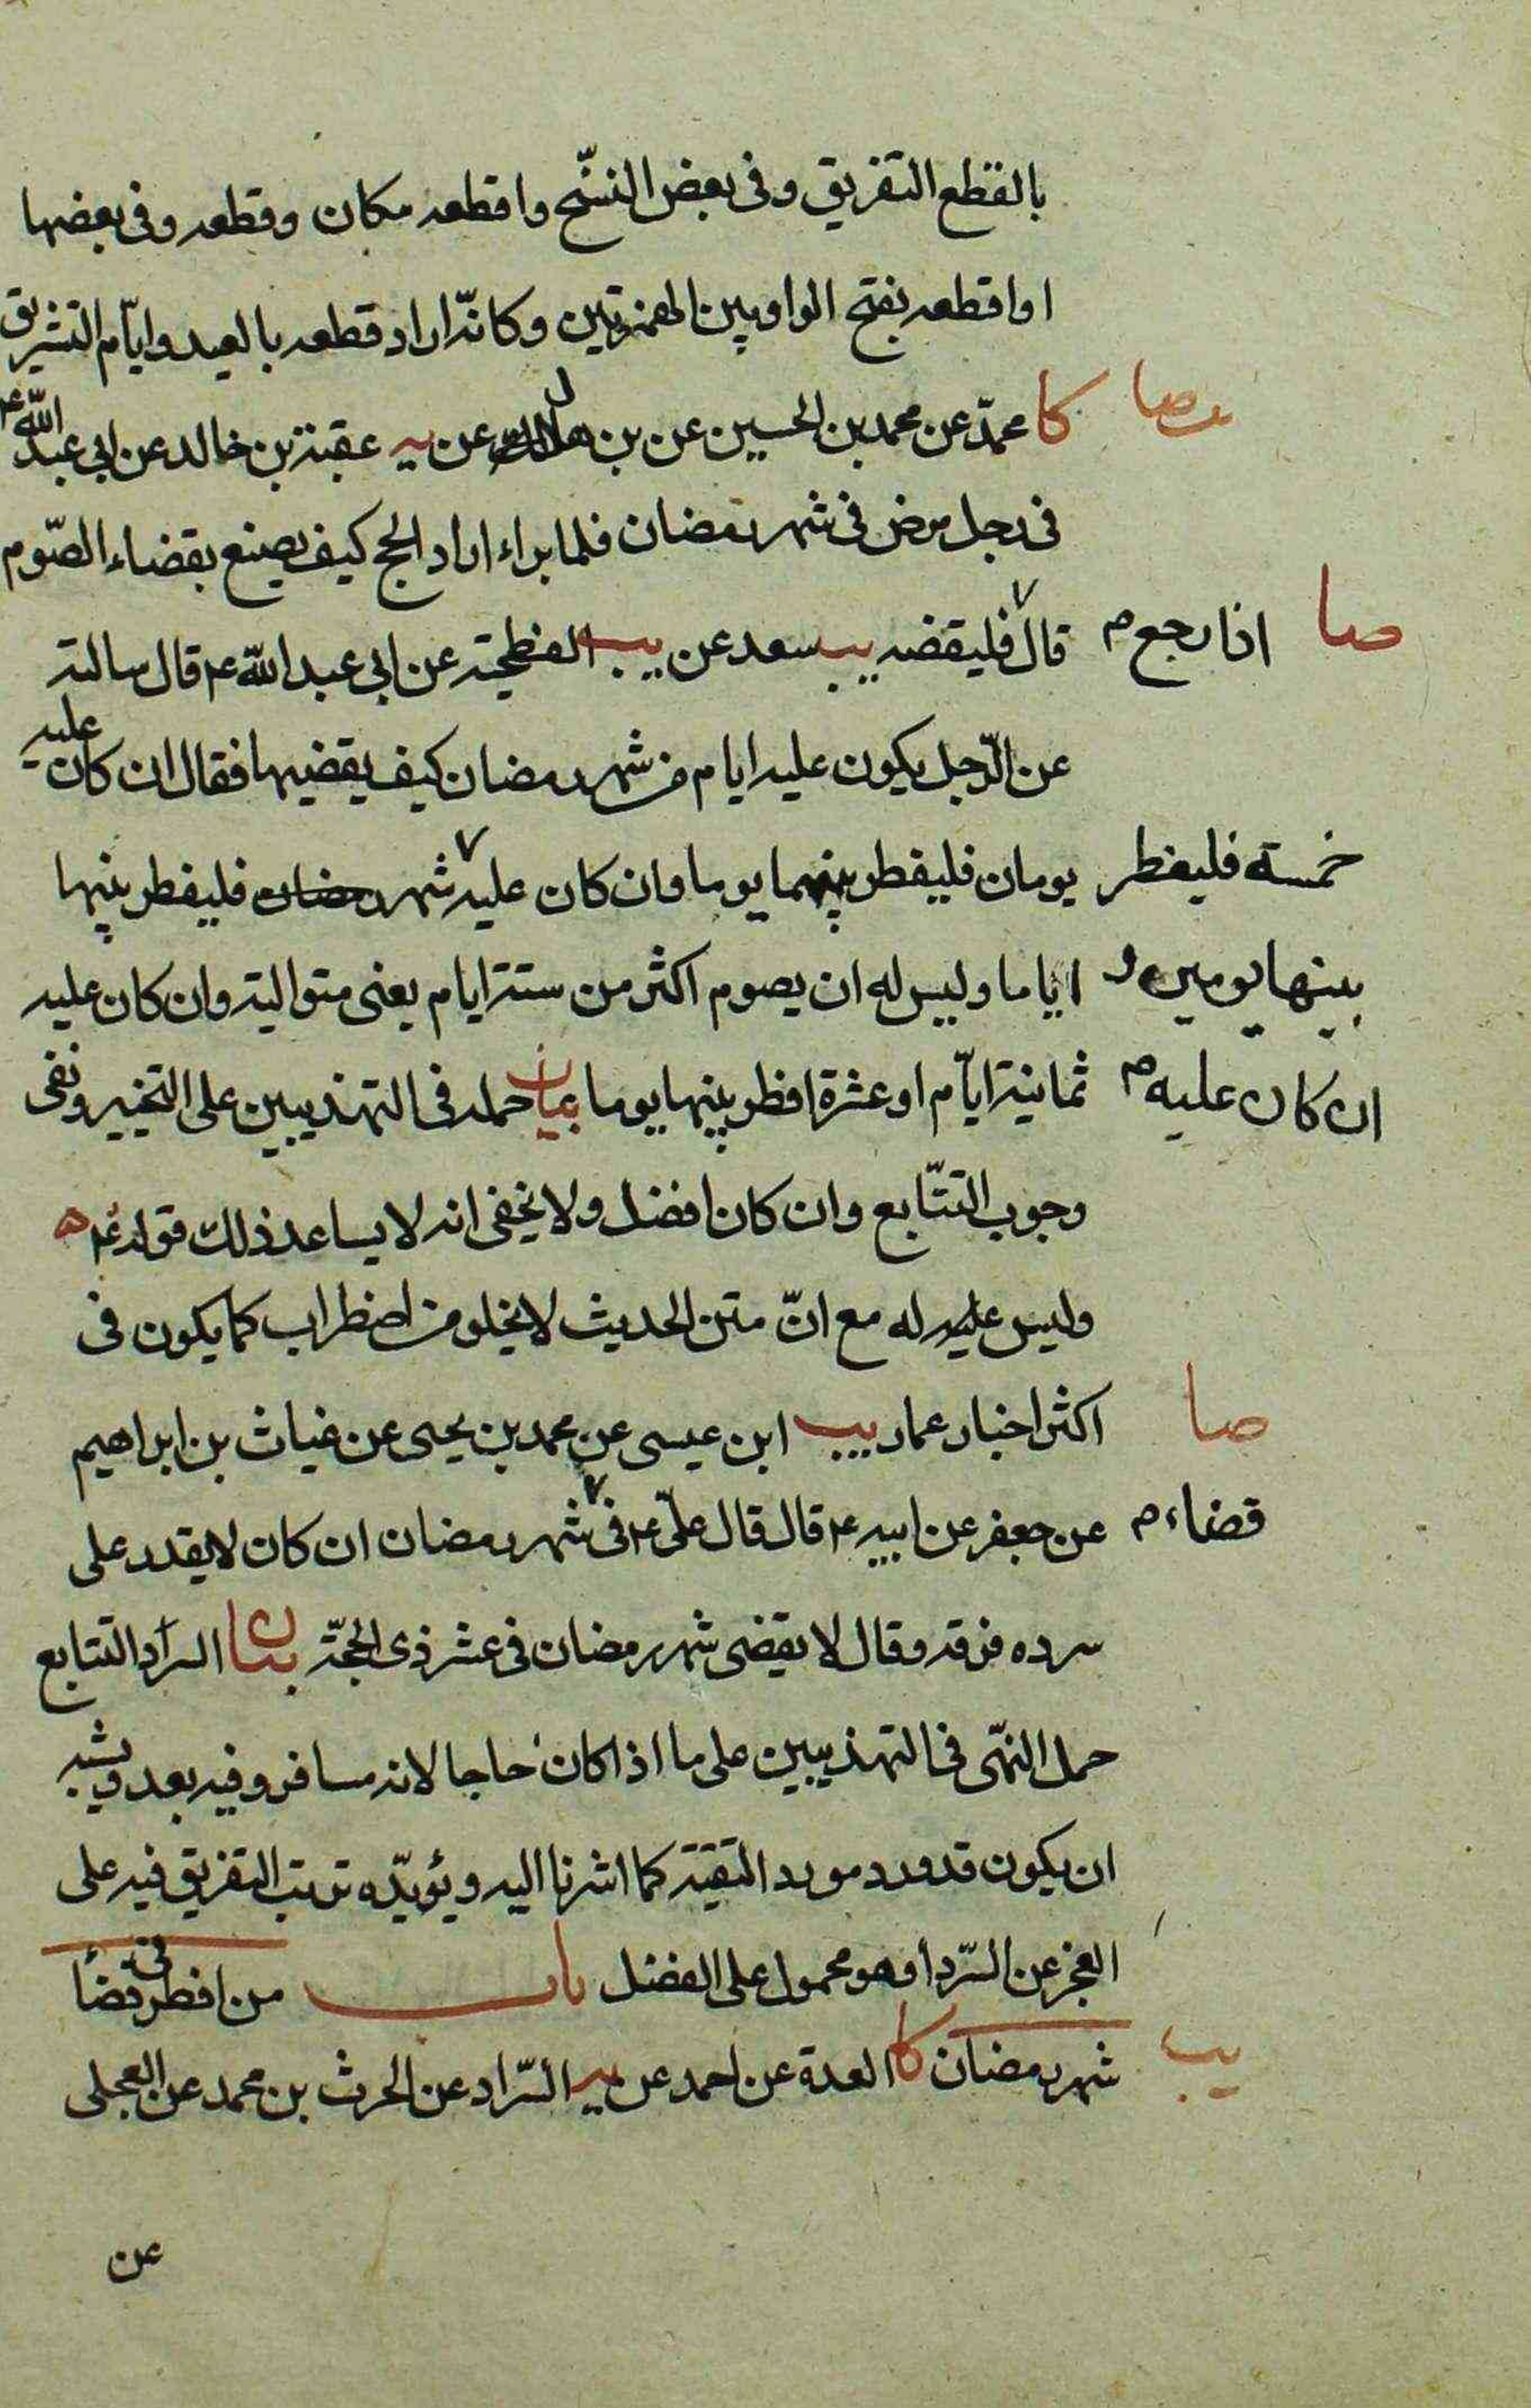 بالقطع التفريق وفى بعض النسّخ واقطعه مكان وقطعه وفى بعضها
او اقطعه بفتح الواو بين الهمزتين وكانّه اراد قطعه بالعيد وايّام التشريق
صا
كا محمّد عن محمد بن الحسين عن بن هلال عن يه عقبة بن خالد عن ابى عبد اللّه ع
فى رجل مرض فى شهر رمضان فلما براء اراد الحج كيف يصنع بقضاء الصّوم
صا اذا رجع م
قال فليقضه يب سعد عن يب الفطحيّة عن ابى عبد اللّه ع قال سالته
عن الرّجل يكون عليه ايام من شهر رمضان كيف يقضيها فقال ان كان عليه
خمسة فليفطر
يومان فليفطر بينهما يوما وان كان عليه شهر رمضان فليفطر بينها
بينها يومين و
اياما وليس له ان يصوم اكثر من ستة ايام يعنى متوالية وان كان عليه
ان كان عليه م
ثمانية ايّام او عشرة افطر بينها يوما بيان حمله فى التهذيبين على التخيير ونفى
وجوب التتّابع وان كان افضل ولا يخفى انه لا يساعد ذلك قوله ع
وليس عليه له مع انّ متن الحديث لا يخلو من اضطراب كما يكون فى
صا
اكثر اخبار عمار يب ابن عيسى عن محمد بن يحيى عن غياث بن ابراهيم
قضاء م
عن جعفر عن ابيه ع قال قال علىّ ع فى شهر رمضان ان كان لا يقدر على
سرده فرقه وقال لا يقضى شهر رمضان فى عشر ذى الحجّة بيان السرد التتابع
حمل النّهى فى التهذيبين على ما اذا كان حاجا لانه مسافر وفيه بعد ويشبه
ان يكون قد ورد مورد التقيّة كما اشرنا اليه ويؤيّده ترتب التفريق فيه على
العجز عن السّرد او هو محمول على الفضل باب من افطر فى قضأ
يب
شهر رمضان كا العدة عن احمد عن يه السّراد عن الحرث بن محمد عن العجلى
عن